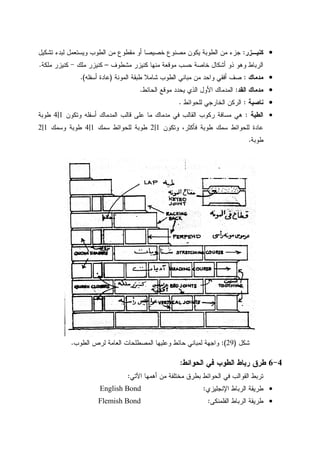 • كنيـــزر: جزء من الطوبة يكون مصنوع خصيصا أو مقطوع من الطوب ويستعمل لبدء تشكيل
الرباط وهو ذو أشكال خاصة حسب موقعة منها كنيزر مشطوف – كنيزر ملك - كنيزر ملكة.
• مدماك : صف أفقي واحد من مباني الطوب شاملاً طبقة المونة (عادة أسفله).
• مدماك القد: المدماك الأول الذي يحدد موقع الحائط.
• ناصية : الركن الخارجي للحوائط .
• الطبة : هي مسافة ركوب القالب في مدماك ما على قالب المدماك أسفله وتكون 1\4 طوبة
عادة للحوائط سمك طوبة فأكثر، وتكون 1\2 طوبة للحوائط سمك 1\4 طوبة وسمك 1\2
طوبة.
LAP
KEYED JOINT
RACKING BACK
PERPEND
STRETCHING COURSE
HEADING COURSE
QUEEN CLOSER
BED JOINTS
TOOTHING
شكل (29): واجهة لمباني حائط وعليها المصطلحات العامة لرص الطوب.
4-6 طرق رباط الطوب في الحوائط:
تربط القوالب في الحوائط بطرق مختلفة من أهمها الآتي:
• طريقة الرباط الإنجليزي: English Bond
• طريقة الرباط الفلمنكى: Flemish Bond